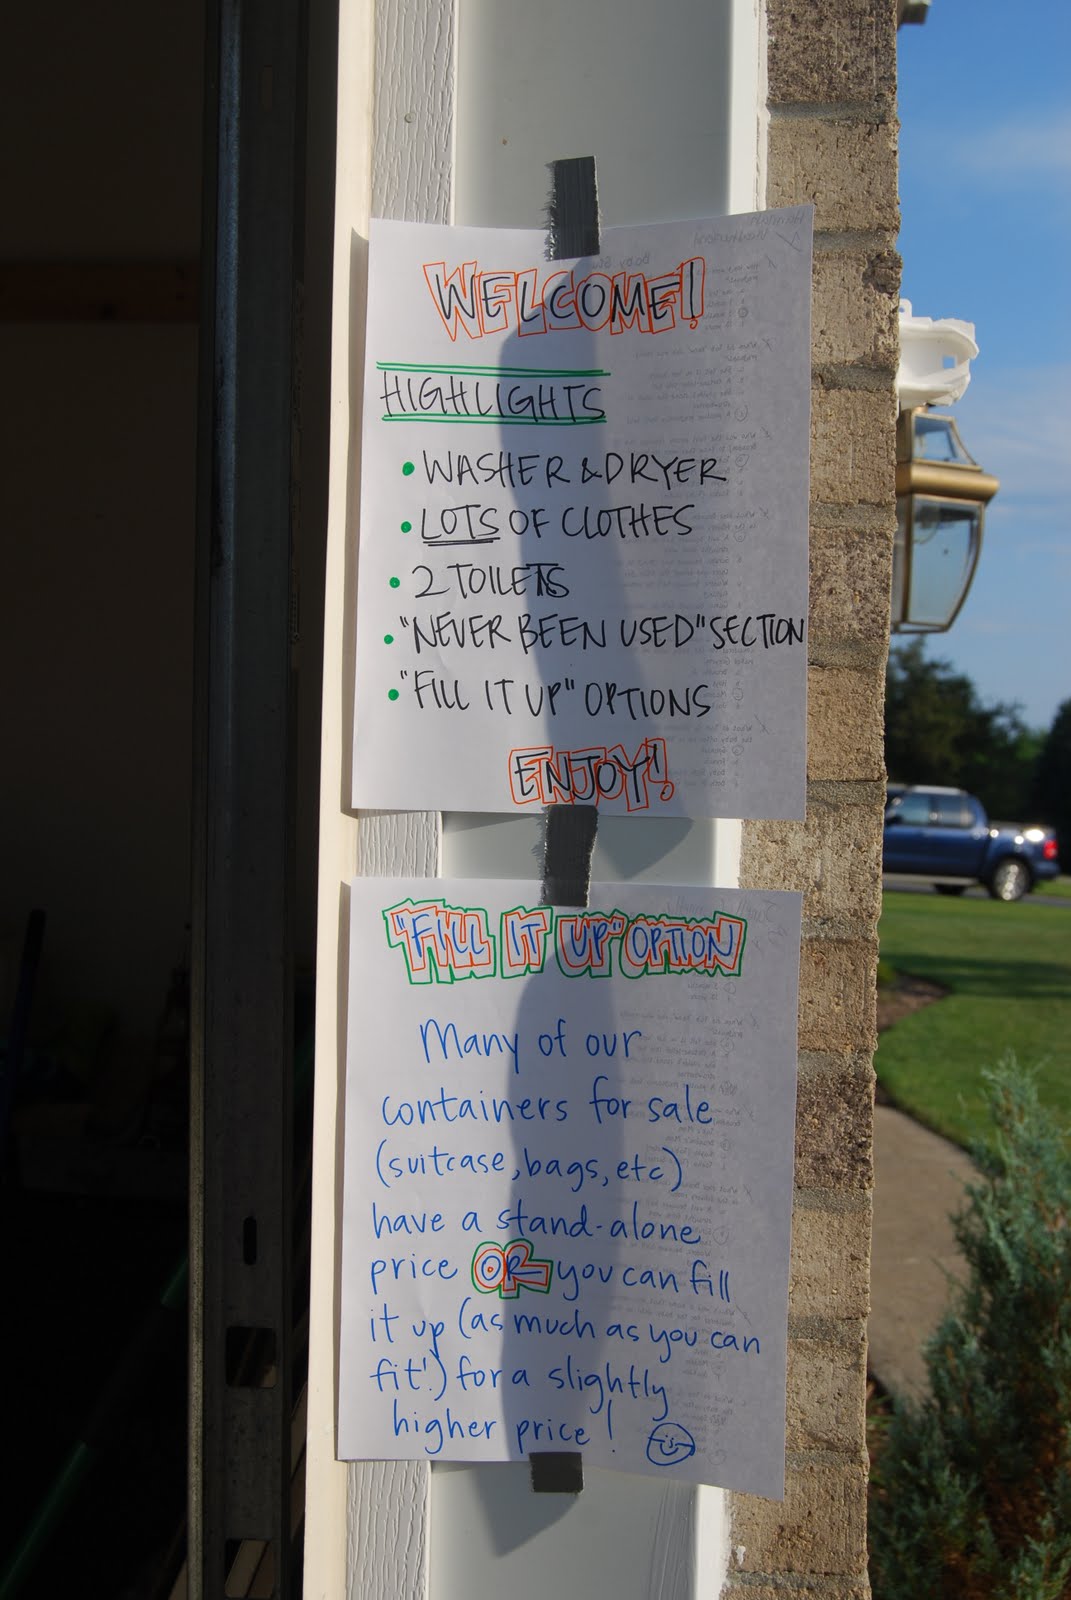 WELCOME!
HIGHLIGHTS
• WASHER & DRYER
• LOTS OF CLOTHES
• 2 TOILETS
• "NEVER BEEN USED" SECTION
• "FILL IT UP" OPTIONS
ENJOY!
"FILL IT UP" OPTION
Many of our
containers for sale
(suitcase, bags, etc)
have a stand-alone
price OR you can fill
it up (as much as you can
fit!) for a slightly
higher price!